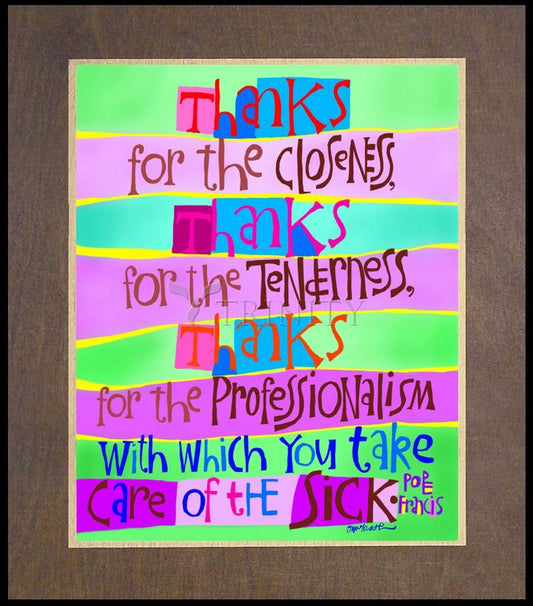 Thanks
for the CLOSENESS,
Thanks
for the TENDERNESS,
TRINITY
Thanks
for the PROFESSIONALISM
With which You take
Care of the SICK.
POPE
Francis